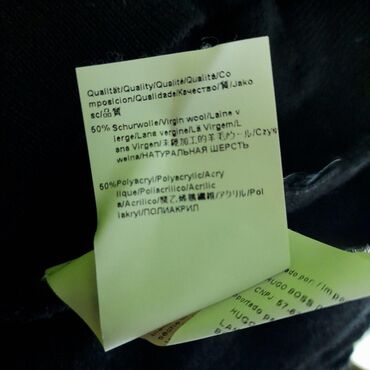 Qualität/Quality/Qualité/Qualità/Co
mposicion/Qualidade/Качество/質/Jako
sc/品質
50% Schurwolle/Virgin wool/Laine v
ierge/Lana vergine/Lã Virgem/L
ana Virgen/未經加工的羊毛/ウール/Czys
wełna/НАТУРАЛЬНАЯ ШЕРСТЬ
50%Polyacryl/Polyacrylic/Acry
lique/Poliacrilico/Acrilic
a/Acrilico/聚乙烯腈纖維/アクリル/Pol
iakryl/ПОЛИАКРИЛ
por: / Impo
HUGO BOSS
CNPJ: 57
HUG